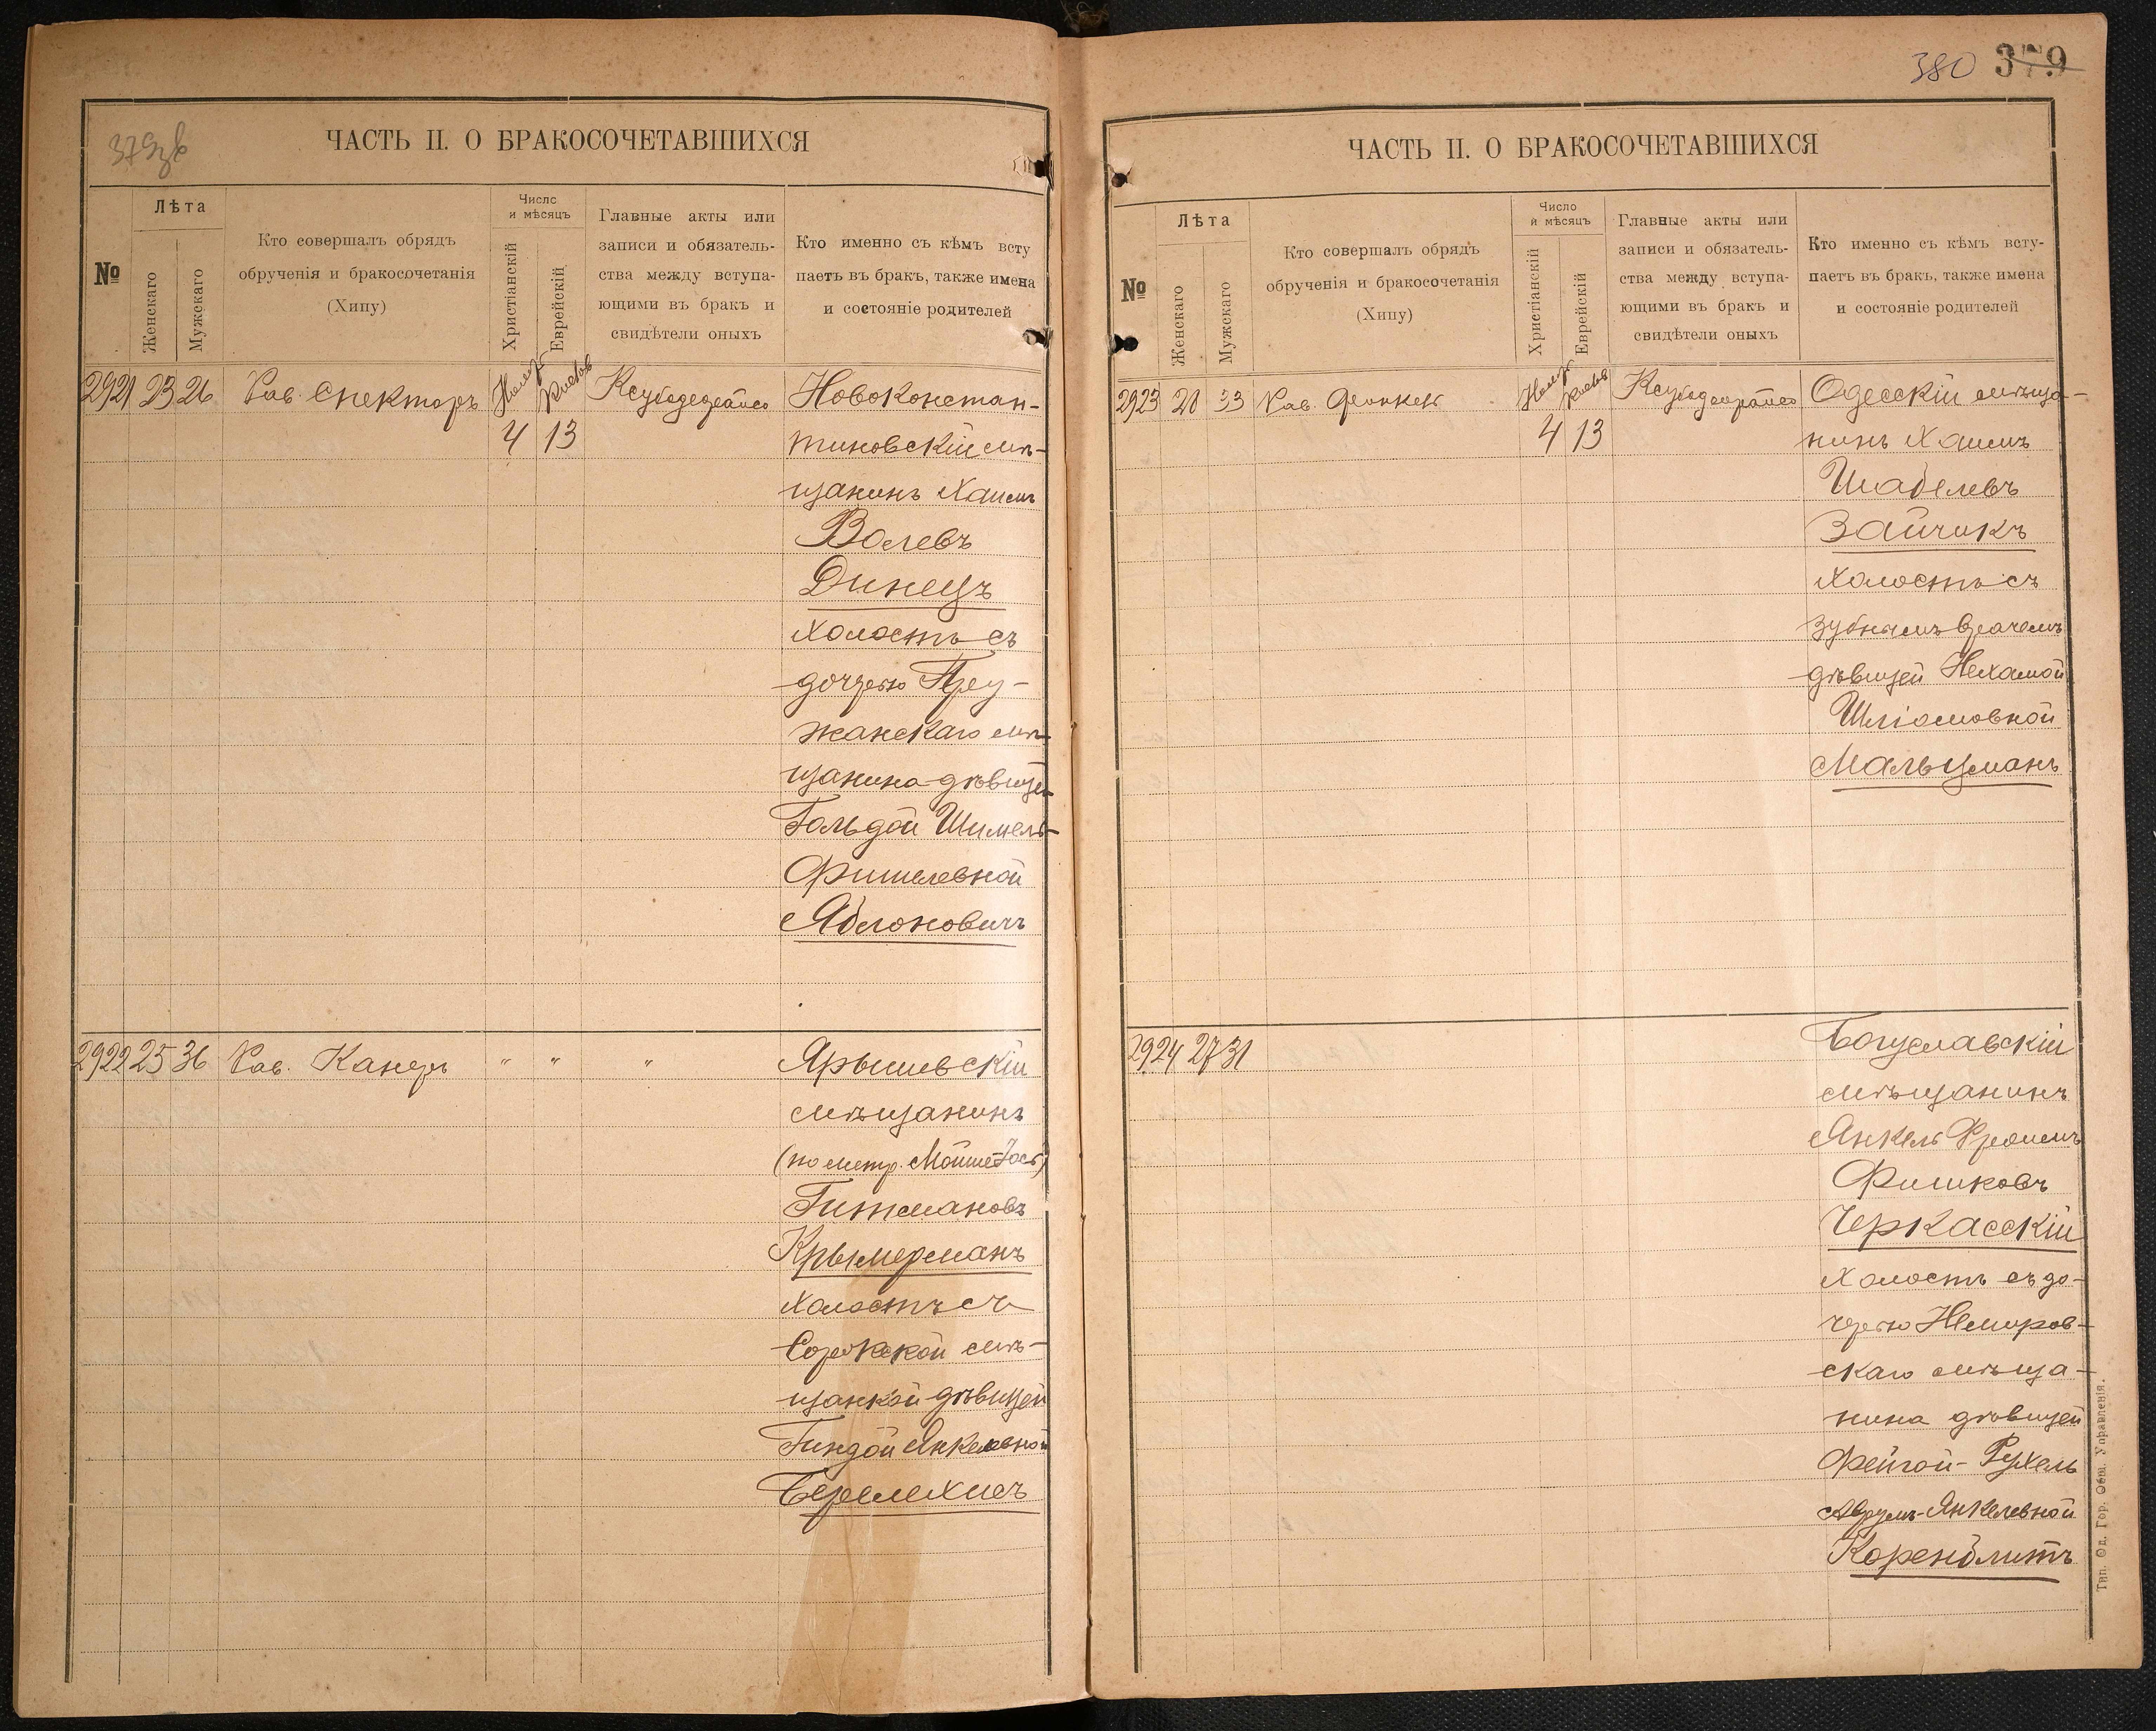 379зв
ЧАСТЬ II. О БРАКОСОЧЕТАВШИХСЯ
№
Лѣта
Женскаго
Мужскаго
Кто совершалъ обрядъ
обрученія и бракосочетанія
(Хипу)
Число
и мѣсяцъ
Христіанскій
Еврейскій
Главные акты или
записи и обязатель-
ства между вступа-
ющими въ бракъ и
свидѣтели оныхъ
Кто именно съ кѣмъ всту
паетъ въ бракъ, также имена
и состояніе родителей
2921 23 26 Рав. Спекторъ
4 13
Новоконстан-
тиновскій мѣ-
щанинъ Хаимъ
Волевъ
Динецъ
холостъ съ
дочерью Пру-
жанскаго мѣ-
щанина дѣвицей
Гольдой Шимель-
Фишелевной
Яблоновичъ
2922 25 36 Рав. Канеръ " " "
Ярышевскій
мѣщанинъ
(по метр. Мойше Іось)
Гитмановъ
Крымерманъ
холостъ съ
Сорокской мѣ-
щанкой дѣвицей
Гиндой Янкелевной
380 379
ЧАСТЬ II. О БРАКОСОЧЕТАВШИХСЯ
№
Лѣта
Женскаго
Мужскаго
Кто совершалъ обрядъ
обрученія и бракосочетанія
(Хипу)
Число
и мѣсяцъ
Христіанскій
Еврейскій
Главные акты или
записи и обязатель-
ства между вступа-
ющими въ бракъ и
свидѣтели оныхъ
Кто именно съ кѣмъ всту-
паетъ въ бракъ, также имена
и состояніе родителей
2923 28 33 Рав.
4 13
Одесскій мѣща-
нинъ Хаимъ
Шабелевъ
Зайчикъ
холостъ съ
зубнымъ врачемъ
дѣвицей Нехамой
Шліомовной
Мальцманъ
2924 27 31
Богуславскій
мѣщанинъ
Янкель Фроимъ
Фишковъ
Черкасскій
холостъ съ до-
черью Немиров-
скаго мѣща-
нина дѣвицей
Фейгой-Рухель
Аврумъ-Янкелевной
Коренблитъ
Тип. Од. Гор. Общ. Управленія.